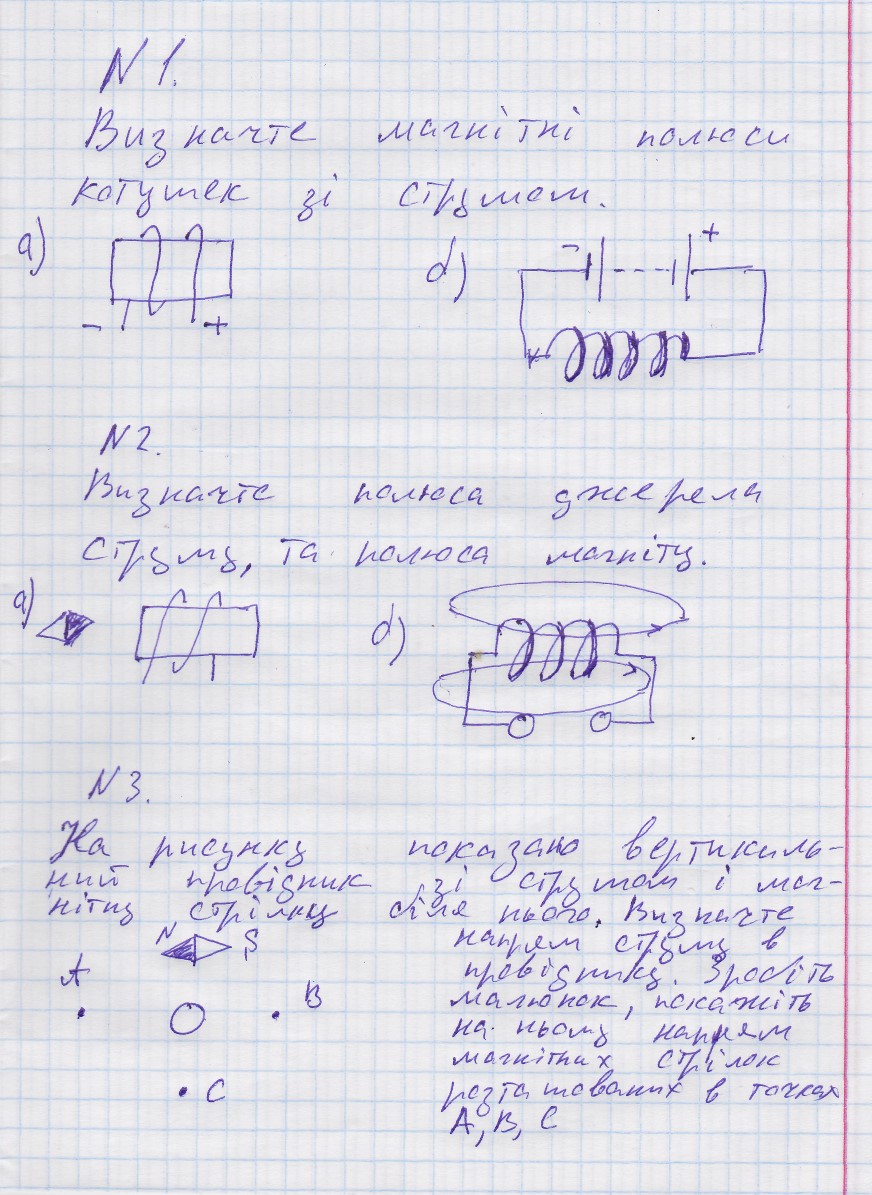 N 1.
Визначте магнітні полюси
котушек зі струмом.
а)
б)
- +
- +
N 2.
Визначте полюса джерела
струму, та полюса магніту.
а)
б)
N 3.
На рисунку показано вертикиль-
ний провідник зі струмом і маг-
нітну стрілку біля нього. Визначте
напрям струму в
провіднику. Зробіть
малюнок, покажіть
на ньому напрям
магнітних стрілок
розташованих в точках
A, B, C
N S
A
B
C